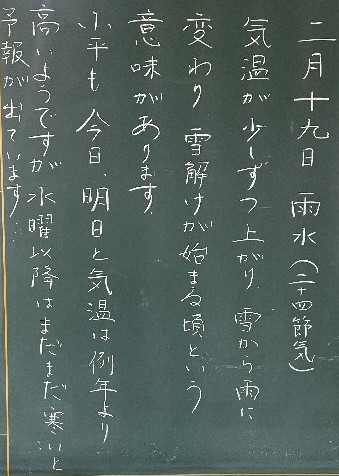 二月十九日 雨水(二十四節気)
気温が少しずつ上がり、雪から雨に
変わり 雪解けが始まる頃という
意味があります
小平も 今日、明日と気温は例年より
高いようですが水曜以降はまだまだ寒いと
予報が出ています…